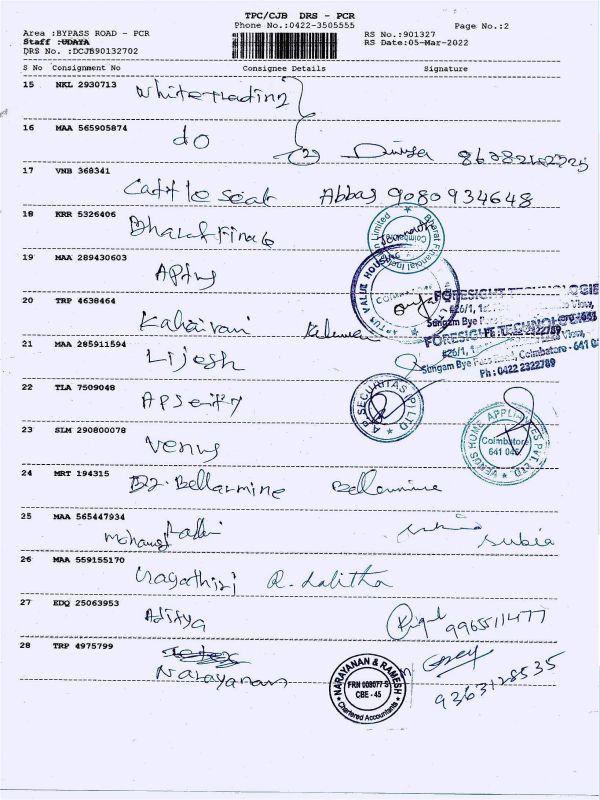 TPC/CJB DRS - PCR
Phone No.:0422-3505555
Page No.:2
Area :BYPASS ROAD - PCR
RS No.:901327
Staff :UDAYA
RS Date:05-Mar-2022
DRS No. :DCJB90132702
S No Consignment No Consignee Details Signature
15 NKL 2930713 Whitetrading
16 MAA 565905874 do
(2) Divya
17 VNB 368341 Abbas 9080934648
18 KRR 5326406
Bharat Financial
Coimbatore
19 MAA 289430603
VALUE HOUSING
20 TRP 4638464 Kalaivani
FORESIGHT TECHNOLOGIES
#26/1,
Sungam Bye
FORESIGHT TECHNOLOGIES
#26/1,
Sungam Bye Pass Road, Coimbatore - 641 0
Ph : 0422 2322789
21 MAA 285911594 Lijesh
22 TLA 7509048
SECURITAS P LTD
23 SLM 290800078 Venus
VENUS HOME APPLIANCES PVT. LTD.
Coimbatore
641 045
24 MRT 194315 Bellarmine Bellarmine
25 MAA 565447934 Mohamed
26 MAA 559155170 R. Lalitha
27 EDQ 25063953 Aditya
9965511477
28 TRP 4975799
Narayanan
NARAYANAN & RAMESH
FRN 008077 S
CBE - 45
Chartered Accountants
9363128535